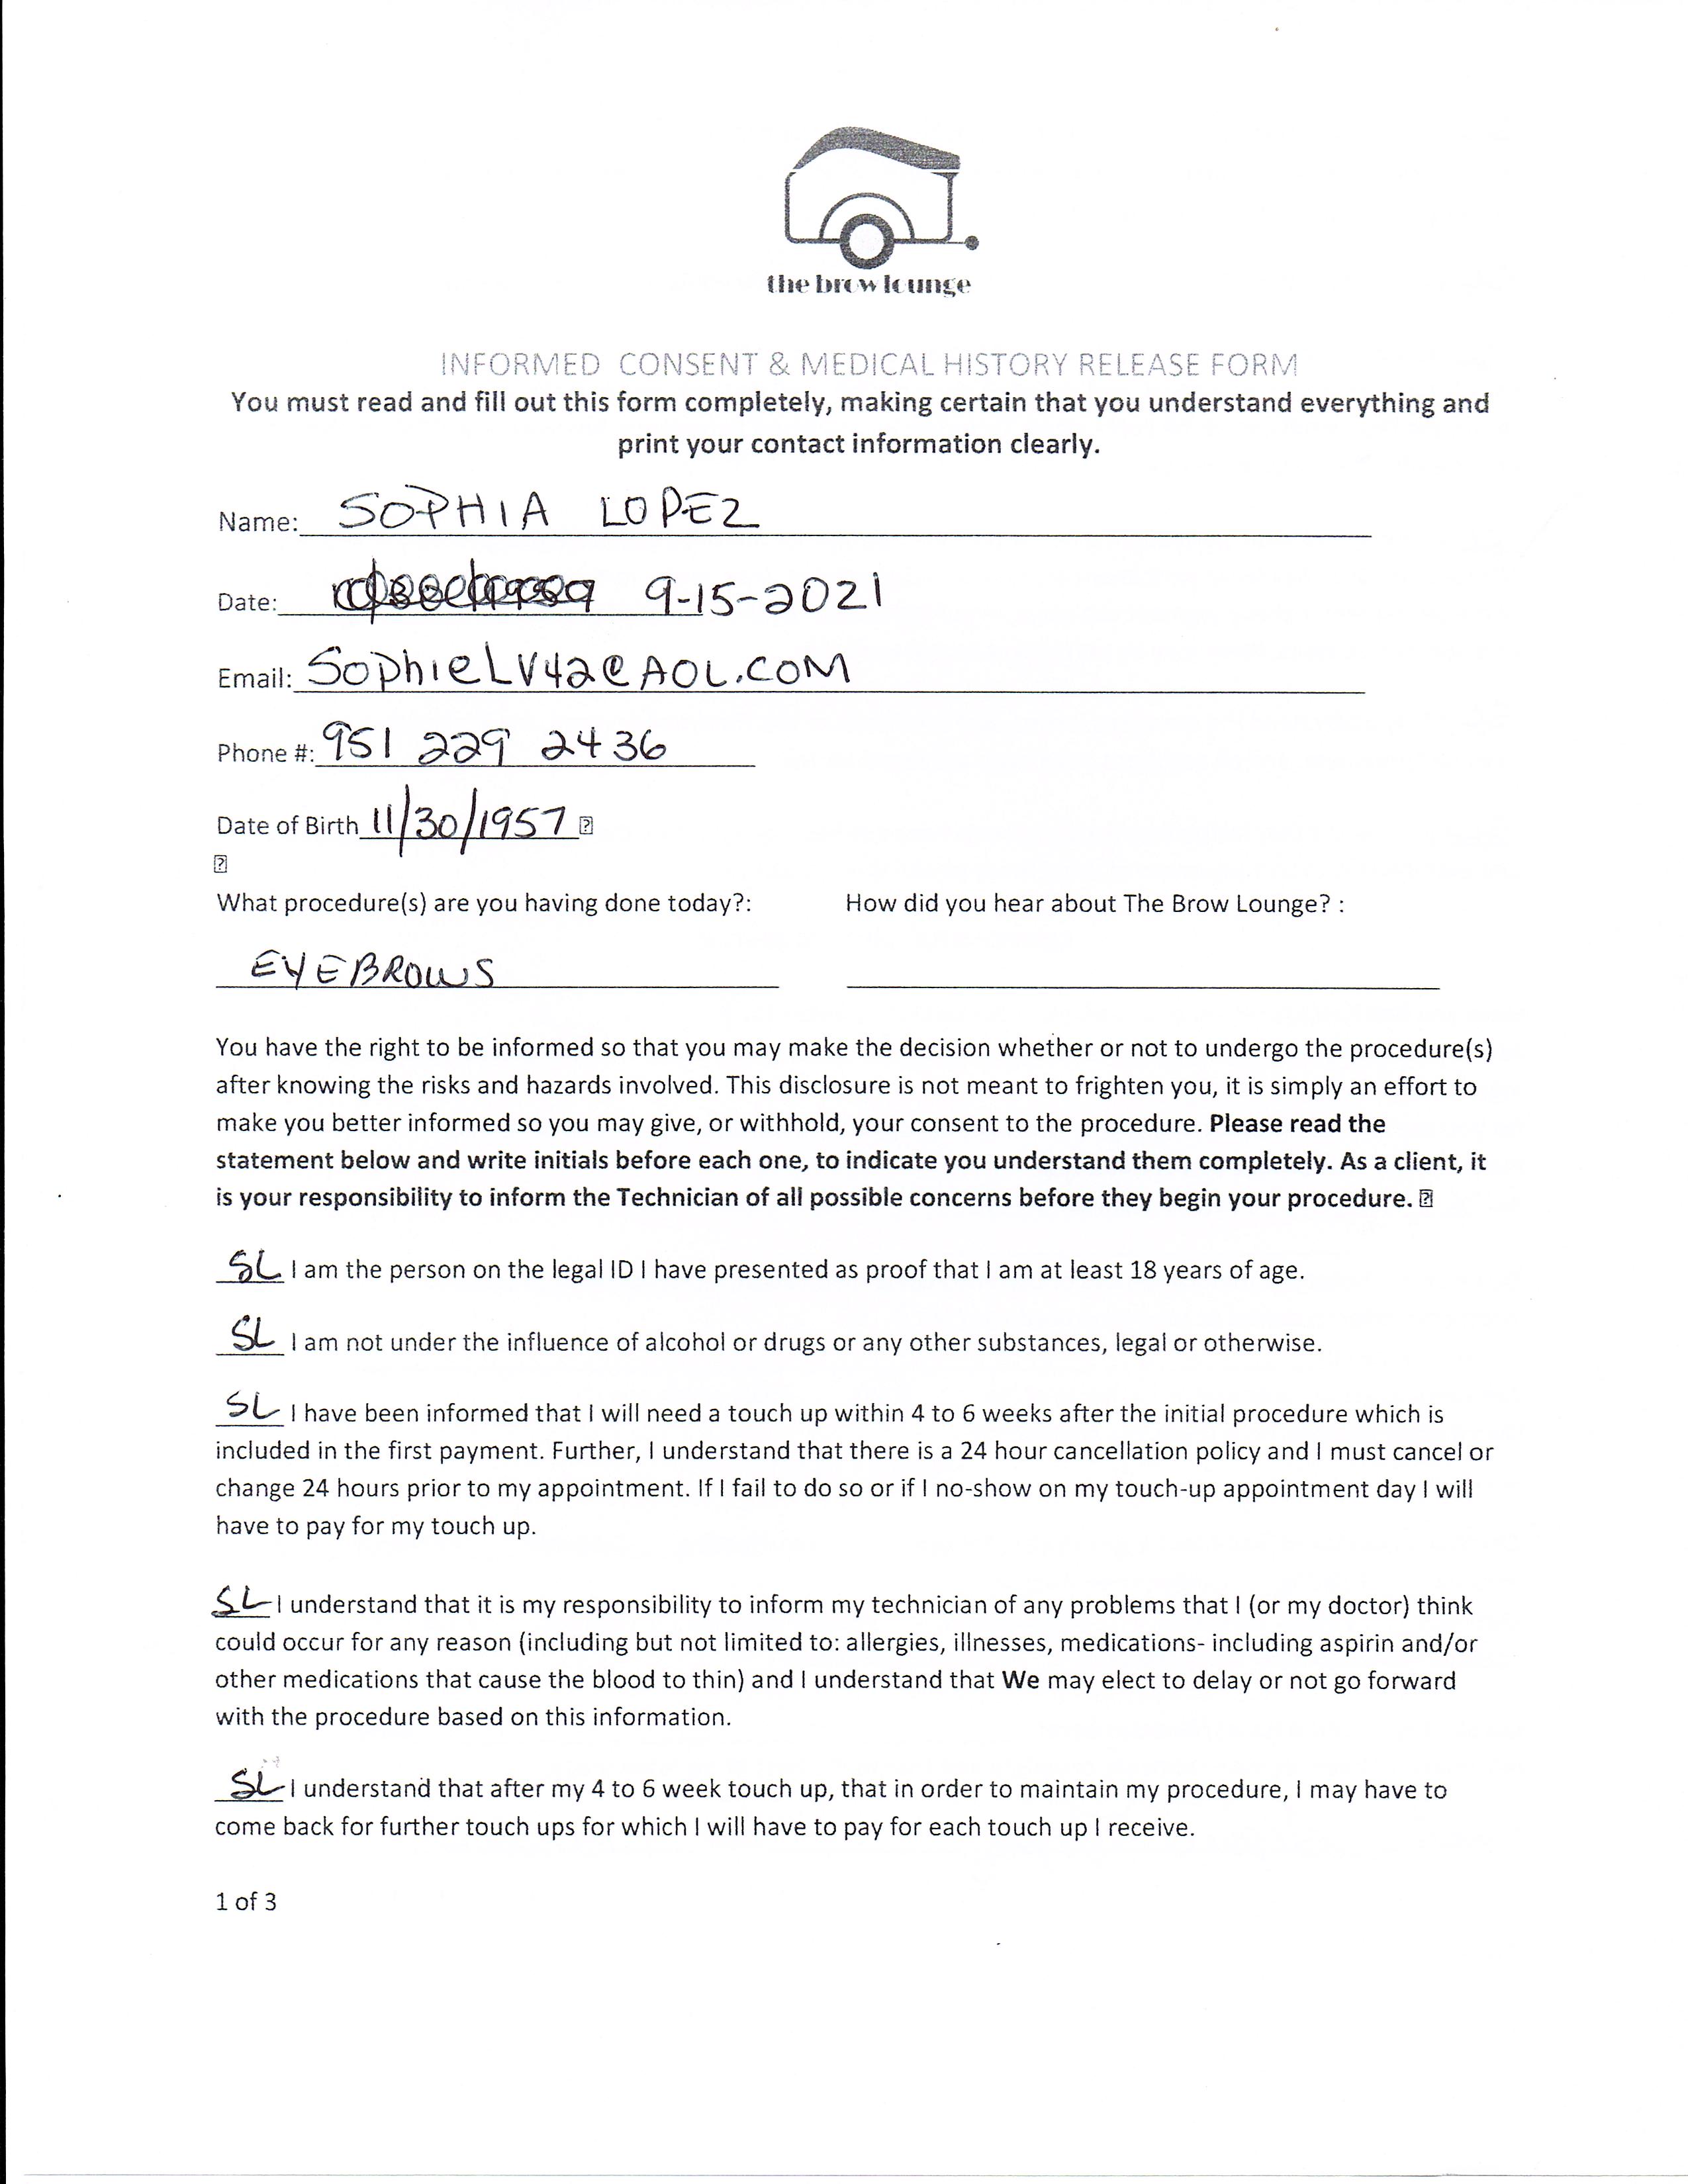 the brow lounge
INFORMED CONSENT & MEDICAL HISTORY RELEASE FORM
You must read and fill out this form completely, making certain that you understand everything and
print your contact information clearly.
Name: SOPHIA LOPEZ
Date: 9-15-2021
Email: SophieLV42@AOL.COM
Phone #: 951 229 2436
Date of Birth 11/30/1957
What procedure(s) are you having done today?: How did you hear about The Brow Lounge? :
EYEBROWS
You have the right to be informed so that you may make the decision whether or not to undergo the procedure(s)
after knowing the risks and hazards involved. This disclosure is not meant to frighten you, it is simply an effort to
make you better informed so you may give, or withhold, your consent to the procedure. Please read the
statement below and write initials before each one, to indicate you understand them completely. As a client, it
is your responsibility to inform the Technician of all possible concerns before they begin your procedure.
SL I am the person on the legal ID I have presented as proof that I am at least 18 years of age.
SL I am not under the influence of alcohol or drugs or any other substances, legal or otherwise.
SL I have been informed that I will need a touch up within 4 to 6 weeks after the initial procedure which is
included in the first payment. Further, I understand that there is a 24 hour cancellation policy and I must cancel or
change 24 hours prior to my appointment. If I fail to do so or if I no-show on my touch-up appointment day I will
have to pay for my touch up.
SL I understand that it is my responsibility to inform my technician of any problems that I (or my doctor) think
could occur for any reason (including but not limited to: allergies, illnesses, medications- including aspirin and/or
other medications that cause the blood to thin) and I understand that We may elect to delay or not go forward
with the procedure based on this information.
SL I understand that after my 4 to 6 week touch up, that in order to maintain my procedure, I may have to
come back for further touch ups for which I will have to pay for each touch up I receive.
1 of 3